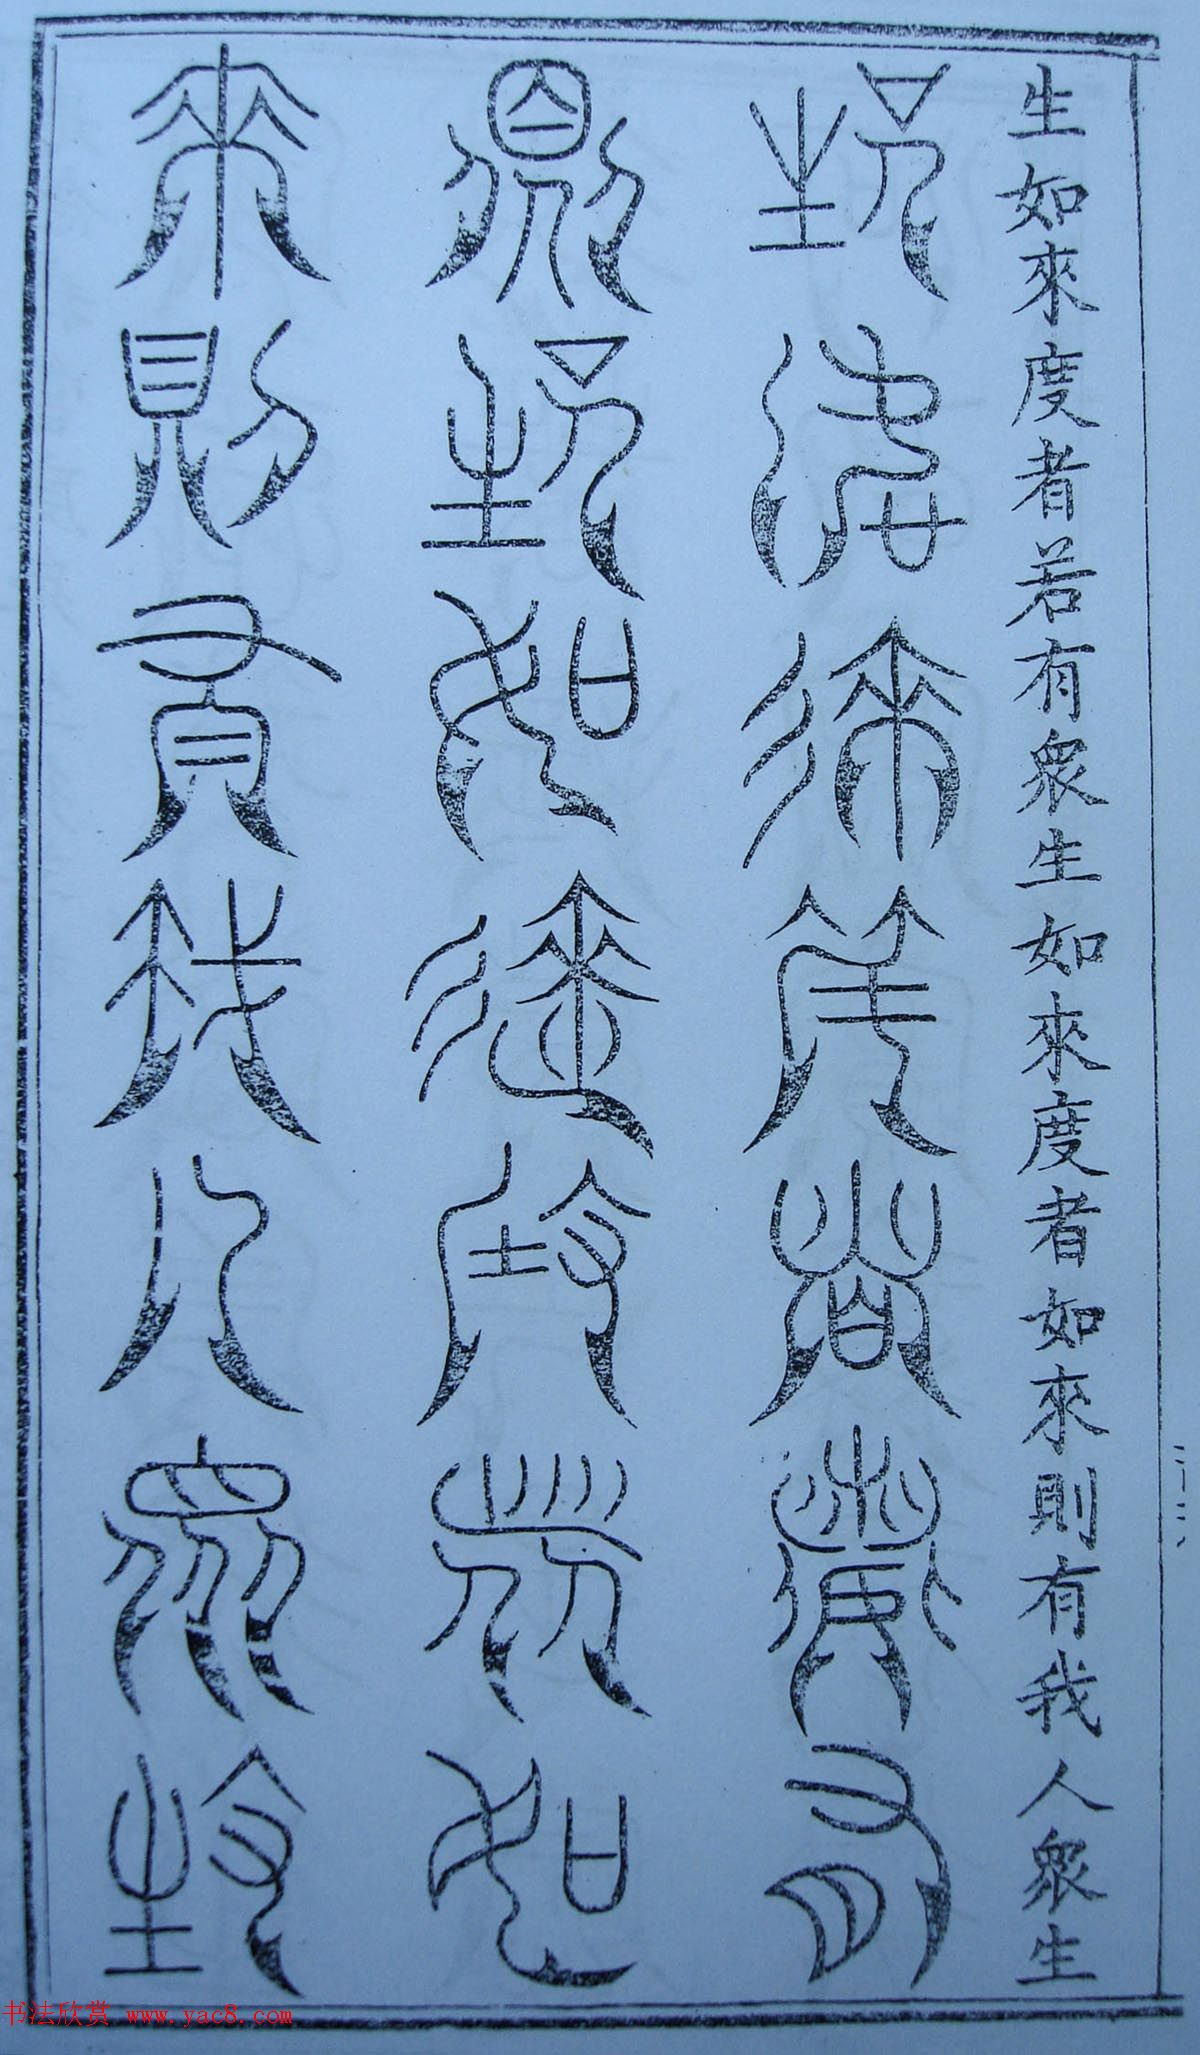 生如來度者若有眾生如來度者如來則有我人眾生
生如來度者若有
眾生如來度者如
來則有我人眾生
书法欣赏 www.yac8.com